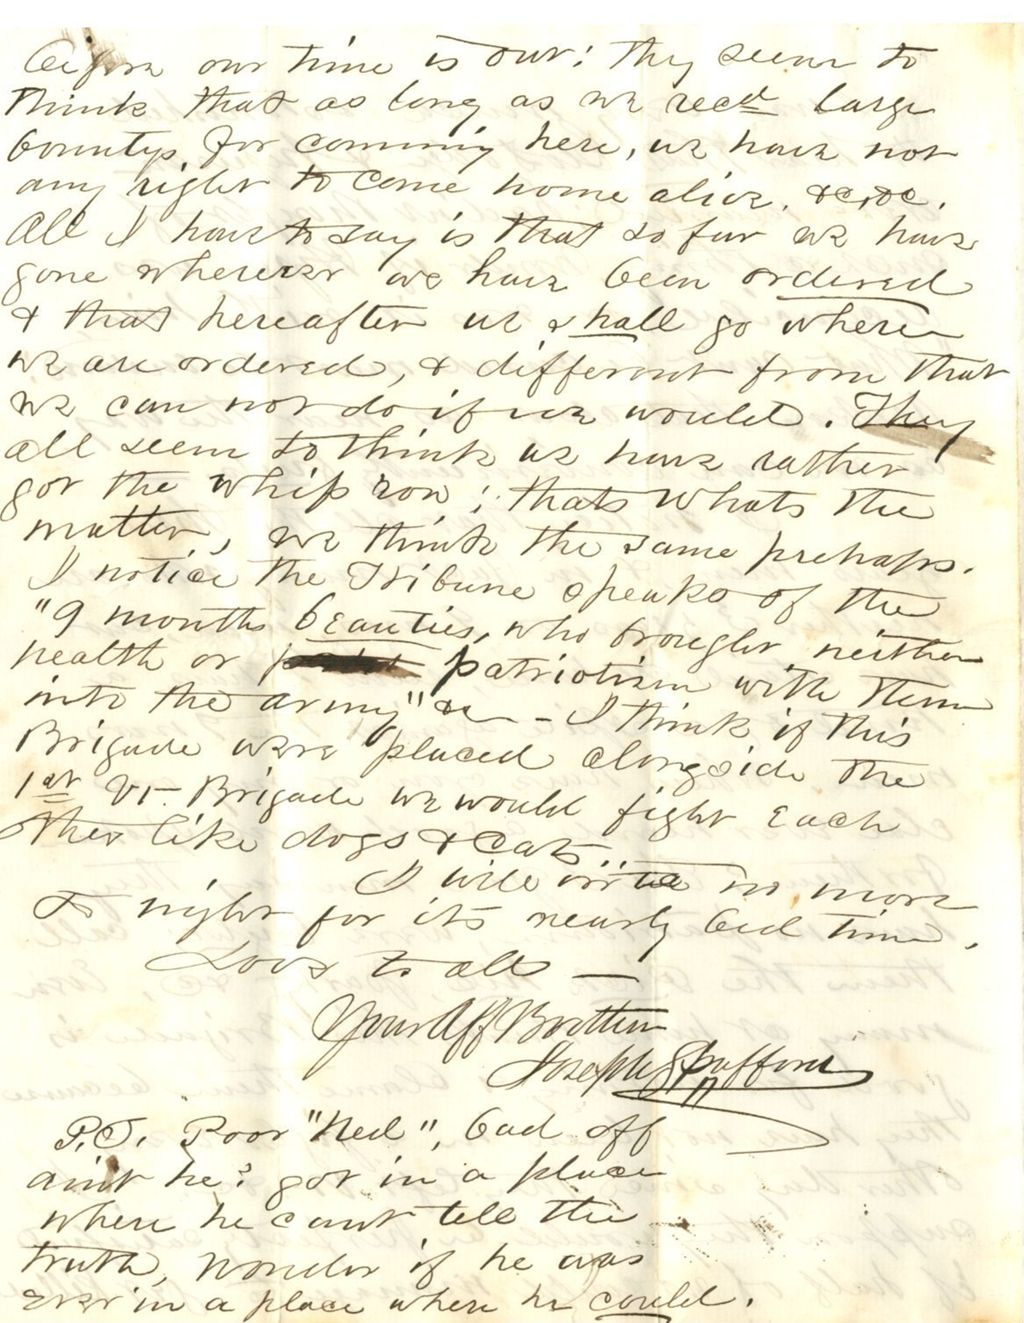 before our time is out: they seem to
think that as long as we recd large
bountys, for comming here, we have not
any right to come home alive. &c, &c.
All I have to say is that so far we have
gone wherever we have been ordered
& that hereafter we shall go where
we are ordered, & different from that
we can not do if we would. They
all seem to think we have rather
got the whip row; thats whats the
matter, we think the same prehaps.
I notice the Tribune speaks of the
"9 months beauties, who brought neither
health or patriotism with them
into the army" &c – I think if this
Brigade were placed alongside the
1st Vt. Brigade we would fight each
other like dogs & cats.
I will write no more
to night for its nearly bed time.
Love to all —
Your Aff Brother
Joseph Spafford
P.S. Poor "Ned", bad off
aint he? got in a place
where he cant tell the
truth, wonder if he was
ever in a place where he could.